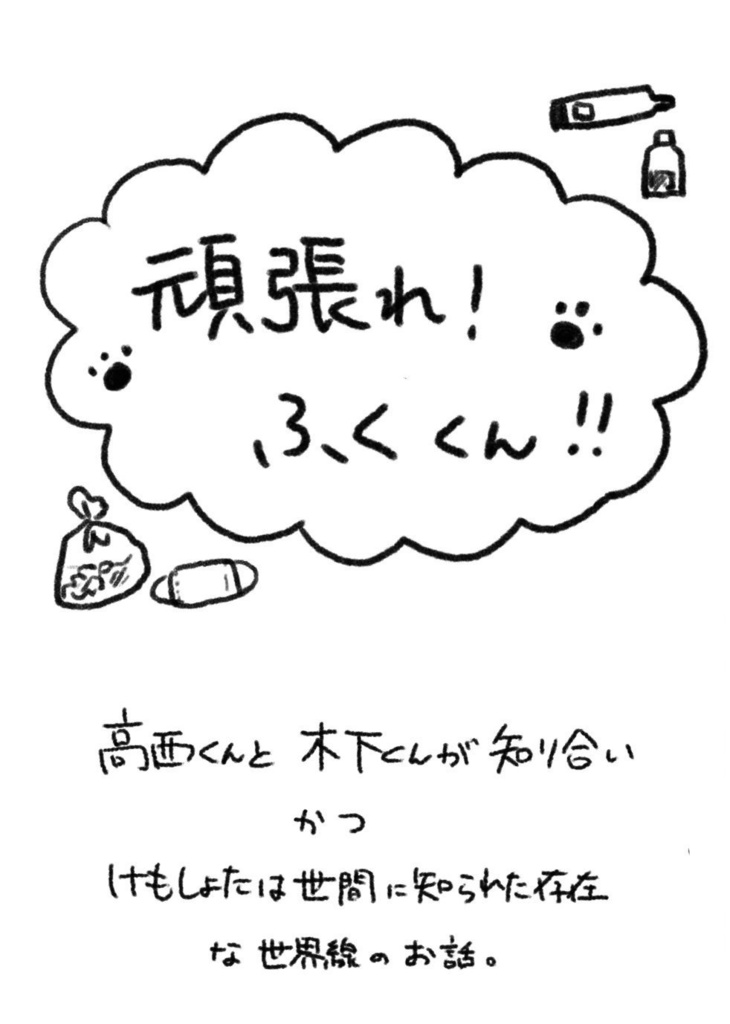 頑張れ!
ふくくん!!
高西くんと 木下くんが 知り合い
かつ
けもしょたは世間に知られた存在
な 世界線の お話。